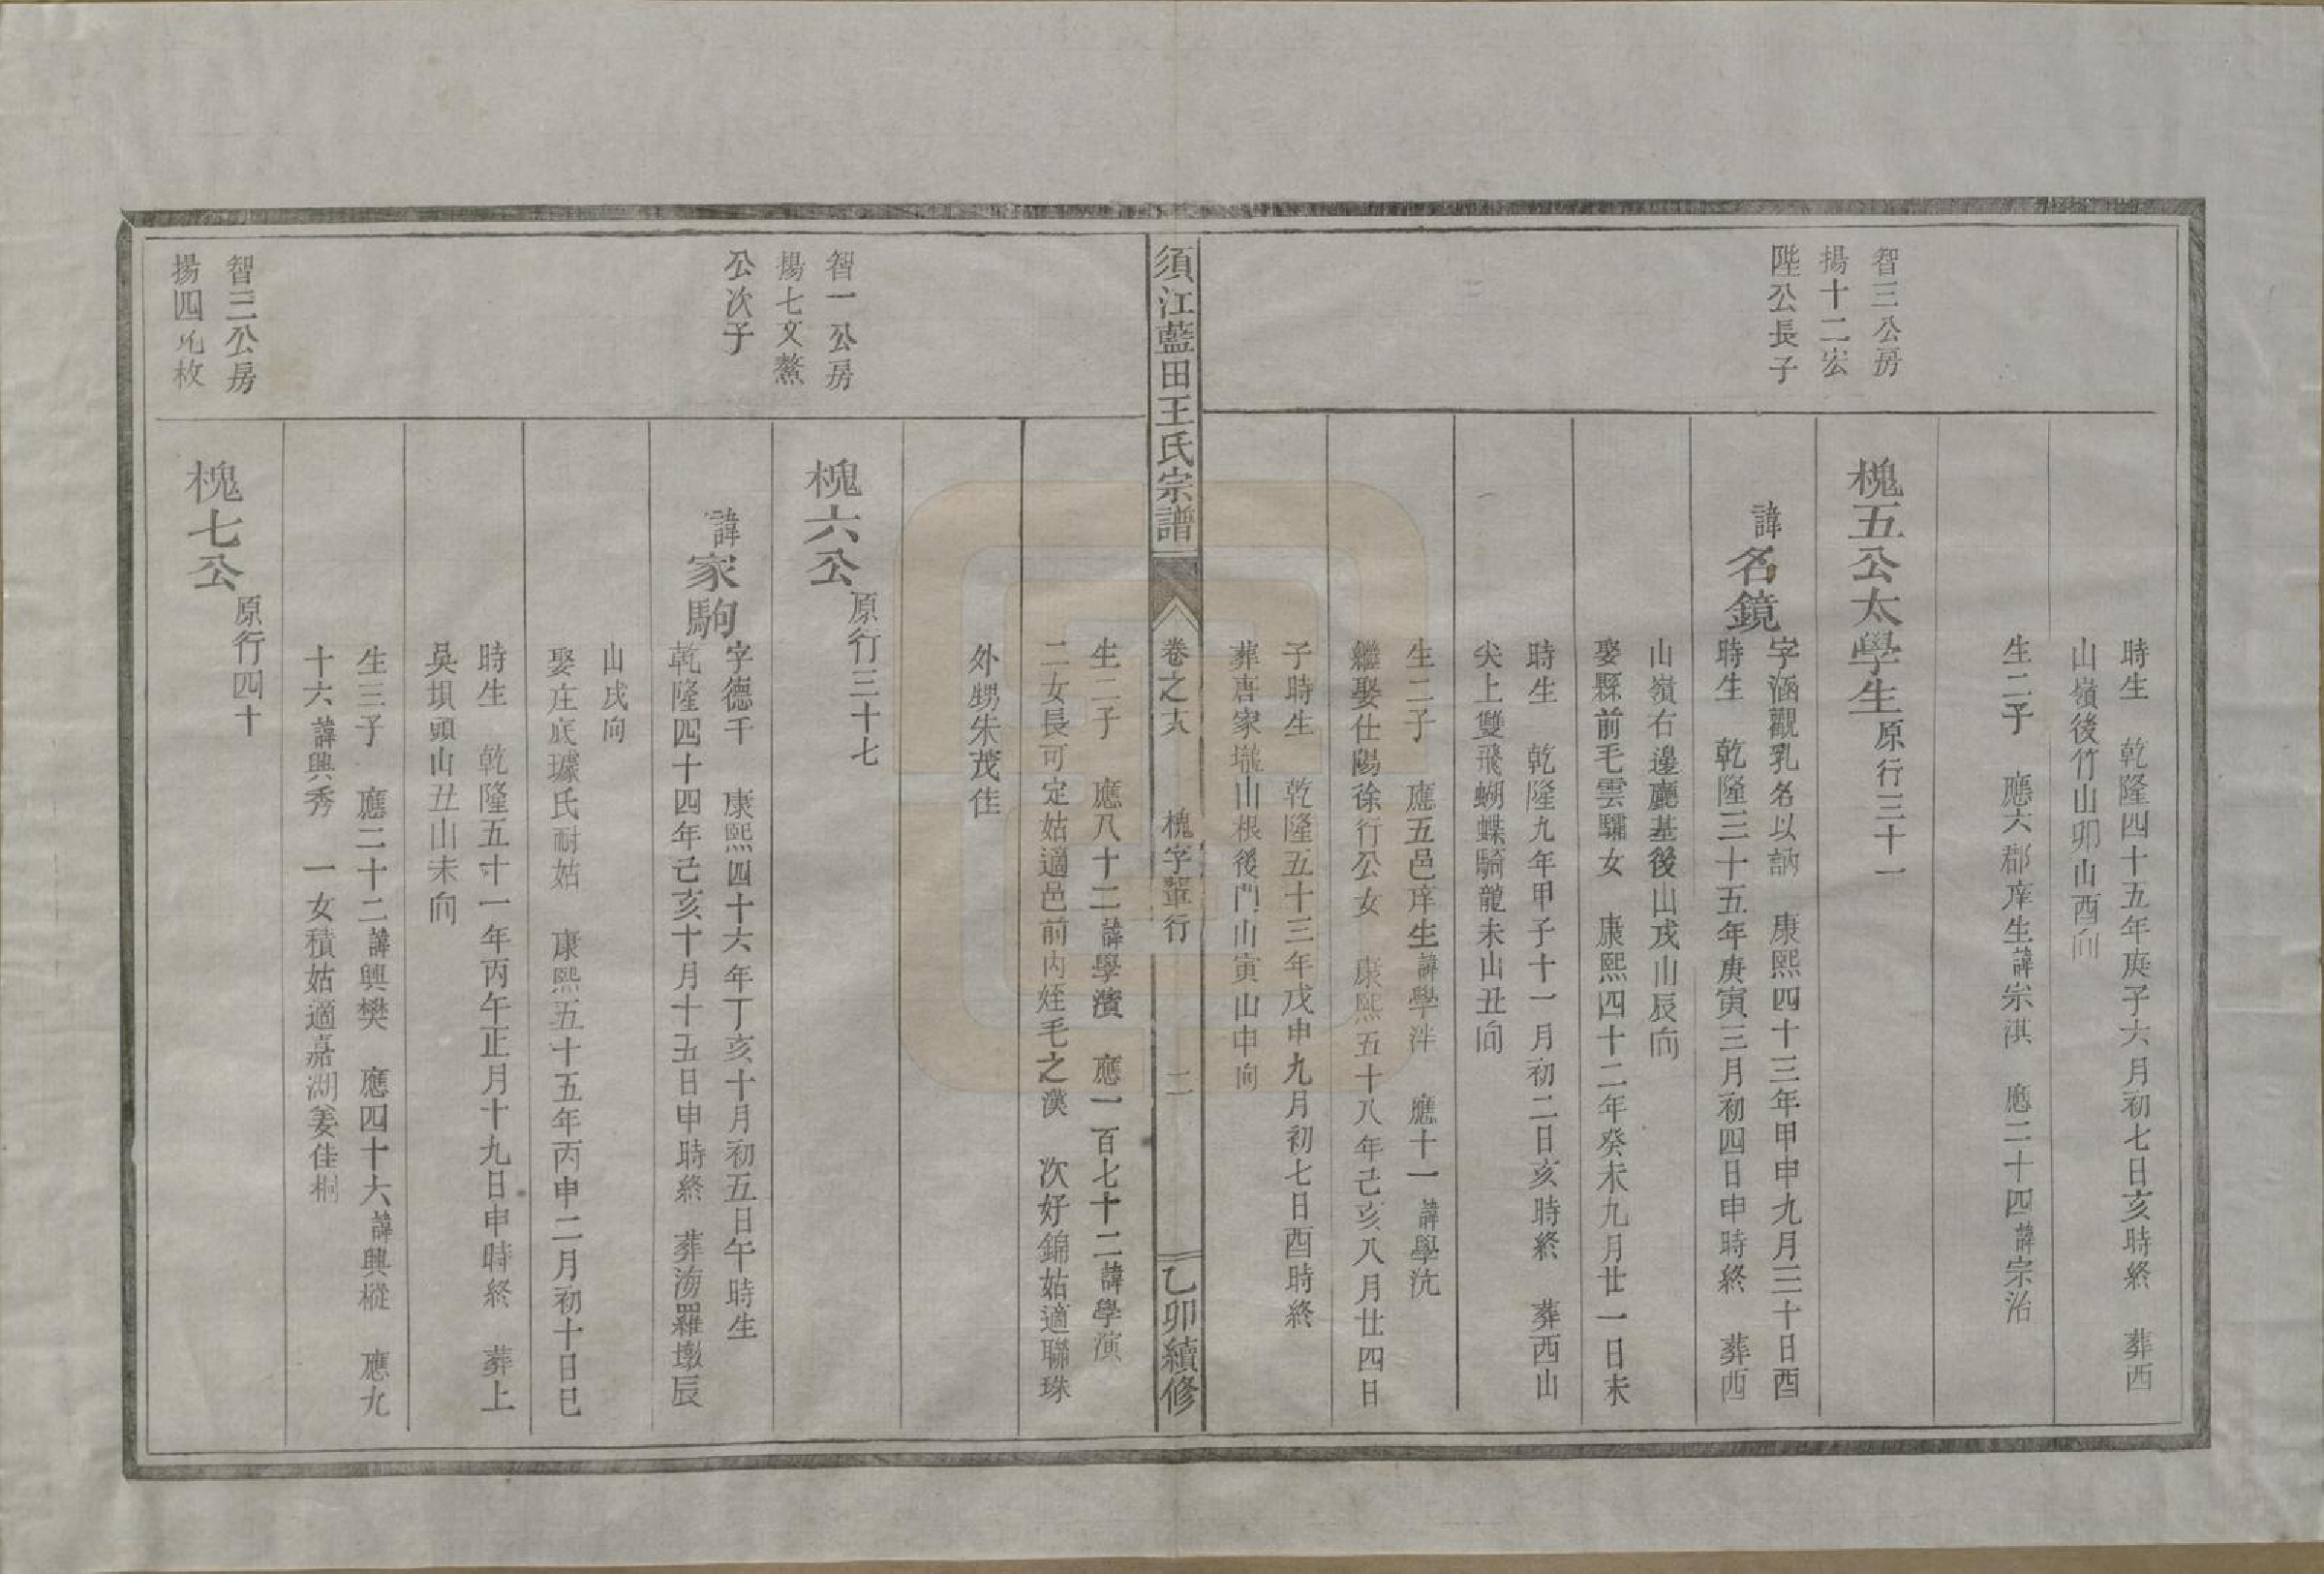 時生　乾隆四十五年庚子六月初七日亥時終　葬西
山嶺後竹山卯山酉向
生二子　應六郡庠生諱宗淇　應二十四諱宗治
智三公房
揚十二宏
陛公長子
槐五公太學生原行三十一
諱名鏡
字涵觀乳名以訥　康熙四十三年甲申九月三十日酉
時生　乾隆三十五年庚寅三月初四日申時終　葬西
山嶺右邊廳基後山戌山辰向
娶縣前毛雲驌女　康熙四十二年癸未九月廿一日未
時生　乾隆九年甲子十一月初二日亥時終　葬西山
尖上雙飛蝴蝶騎龍未山丑向
生二子　應五邑庠生諱學泮　應十一諱學沆
繼娶仕陽徐行公女　康熙五十八年己亥八月廿四日
子時生　乾隆五十三年戊申九月初七日酉時終
葬唐家壠山根後門山寅山申向
須江藍田王氏宗譜
卷之六　槐字輩行　二
乙卯續修
生二子　應八十二諱學濱　應一百七十二諱學演
二女長可定姑適邑前內姪毛之漢　次好錦姑適聯珠
外甥朱茂佳
智一公房
揚七文鰲
公次子
槐六公
原行三十七
諱家駒
字德千　康熙四十六年丁亥十月初五日午時生
乾隆四十四年己亥十月十五日申時終　葬湯羅墩辰
山戌向
娶庄底璩氏耐姑　康熙五十五年丙申二月初十日巳
時生　乾隆五十一年丙午正月十九日申時終　葬上
吳垻頭山丑山未向
生三子　應二十二諱興樊　應四十六諱興樅　應九
十六諱興秀　一女積姑適嘉湖姜佳桐
智三公房
揚四兆枚
槐七公
原行四十